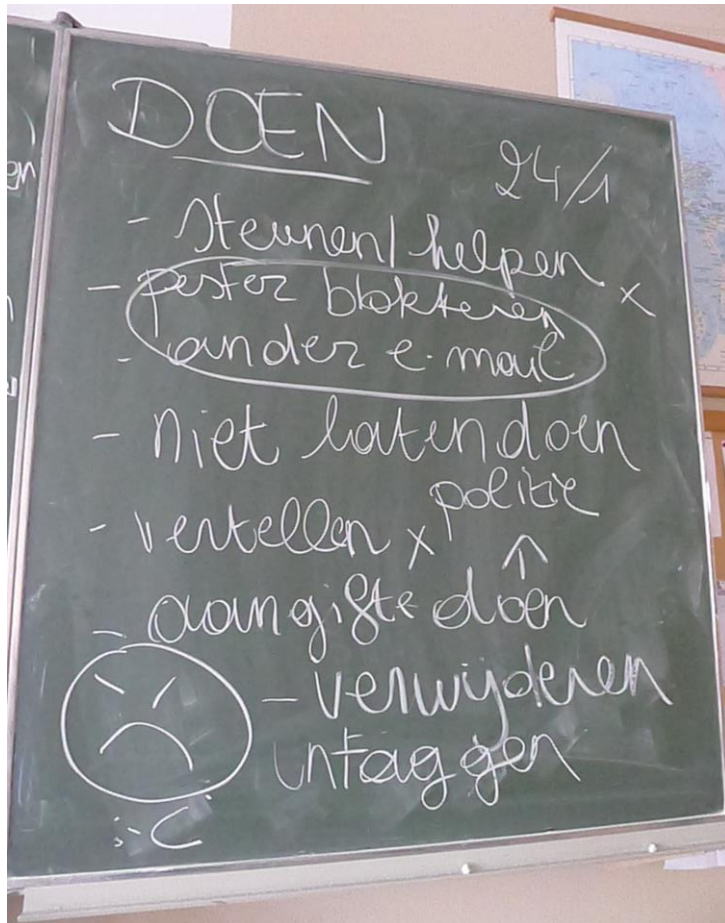 DOEN
24/1
- steunen/helpen x
- pester blokkeren
- ander e-mail
- niet laten doen
- vertellen x politie
↑
- aangifte doen
- verwijderen
untaggen
:-(